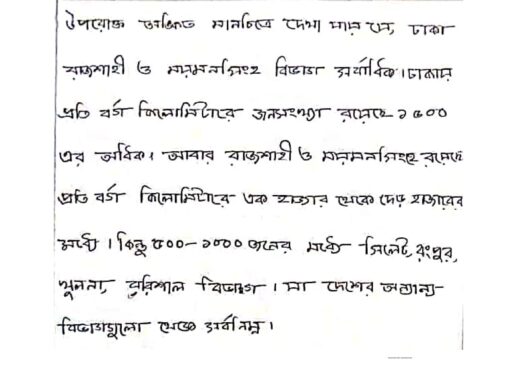 উপরোক্ত অঙ্কিত মানচিত্রে দেখা যায় যে, ঢাকা
রাজশাহী ও ময়মনসিংহ বিভাগ সর্বাধিক। ঢাকায়
প্রতি বর্গ কিলোমিটারে জনসংখ্যা রয়েছে ১৫০০
এর অধিক। আবার রাজশাহী ও ময়মনসিংহে রয়েছে
প্রতি বর্গ কিলোমিটারে এক হাজার থেকে দেড় হাজারের
মধ্যে। কিন্তু ৫০০-১০০০ জনের মধ্যে সিলেট, রংপুর,
খুলনা, বরিশাল বিভাগ। যা দেশের অন্যান্য
বিভাগগুলো থেকে সর্বনিম্ন।